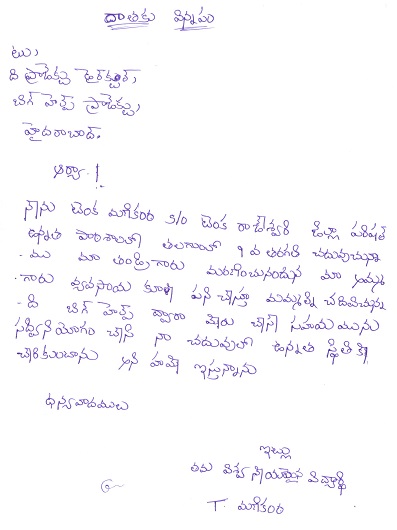 దాతకు విన్నపం
టు,
ది ప్రాజెక్టు డైరెక్టర్,
బిగ్ హెల్ప్ ప్రాజెక్టు,
హైదరాబాద్.
ఆర్యా!
నేను టెంక మణికంఠ S/o టెంక రాజేశ్వరి జిల్లా పరిషత్
ఉన్నత పాఠశాలలో 9 వ తరగతి చదువుచున్నా
ను మా తండ్రిగారు మరణించినందున మా అమ్మ
గారు వ్యవసాయ కూలి పని చేస్తూ మమ్మల్ని చదివిస్తున్న
ది బిగ్ హెల్ప్ ద్వారా మీరు చేసే సహాయమును
సద్వినియోగం చేసి నా చదువులో ఉన్నత స్థితికి
చేరుకుంటాను అని హామీ ఇస్తున్నాను
ధన్యవాదములు
ఇట్లు
తమ విశ్వసనీయమైన విద్యార్థి
T. మణికంఠ